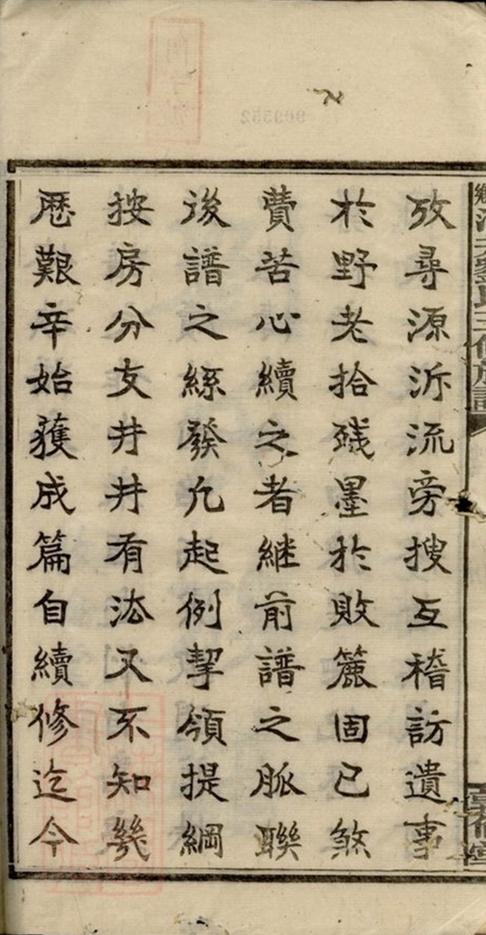 攷尋源泝流旁搜互稽訪遺事
於野老拾殘墨於敗簏固已煞
費苦心續之者継前譜之脈聯
後譜之絲發凡起例挈領提綱
按房分支井井有法又不知幾
歷艱辛始獲成篇自續修迄今
氏三修族譜
909552